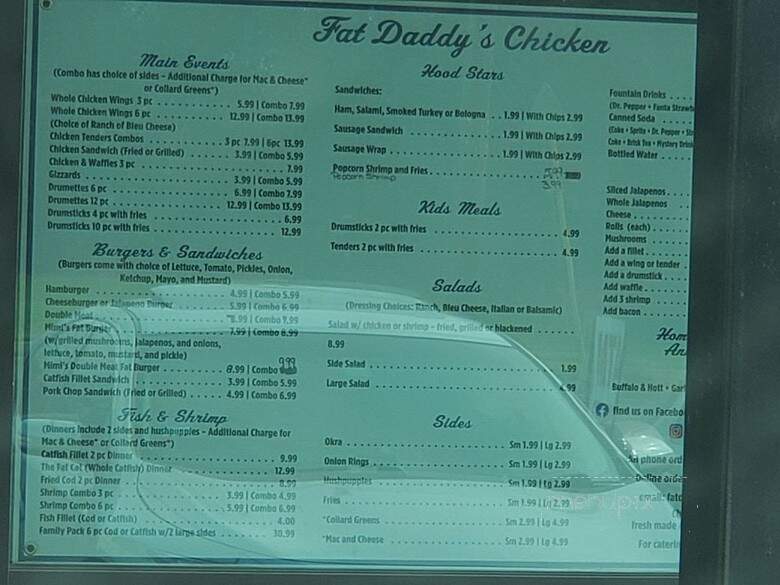 Fat Daddy's Chicken
Main Events
(Combo has choice of sides - Additional Charge for Mac & Cheese*
or Collard Greens*)
Whole Chicken Wings 3 pc 5.99 | Combo 7.99
Whole Chicken Wings 6 pc 12.99 | Combo 13.99
(Choice of Ranch of Bleu Cheese)
Chicken Tenders Combos 3 pc 7.99 | 6pc 13.99
Chicken Sandwich (Fried or Grilled) 3.99 | Combo 5.99
Chicken & Waffles 3 pc 7.99
Gizzards 3.99 | Combo 5.99
Drumettes 6 pc 6.99 | Combo 7.99
Drumettes 12 pc 12.99 | Combo 13.99
Drumsticks 4 pc with fries 6.99
Drumsticks 10 pc with fries 12.99
Burgers & Sandwiches
(Burgers come with choice of Lettuce, Tomato, Pickles, Onion,
Ketchup, Mayo, and Mustard)
Hamburger 4.99 | Combo 5.99
Cheeseburger or Jalapeno Burger 5.99 | Combo 6.99
Double Meat 8.99 | Combo 9.99
Mimi's Fat Burger 7.99 | Combo 8.99
(w/grilled mushrooms, jalapenos, and onions,
lettuce, tomato, mustard, and pickle)
9.99
Mimi's Double Meat Fat Burger 8.99 | Combo
Catfish Fillet Sandwich 3.99 | Combo 5.99
Pork Chop Sandwich (Fried or Grilled) 4.99 | Combo 6.99
Fish & Shrimp
(Dinners include 2 sides and hushpuppies - Additional Charge for
Mac & Cheese* or Collard Greens*)
Catfish Fillet 2 pc Dinner 9.99
The Fat Cat (Whole Catfish) Dinner 12.99
Fried Cod 2 pc Dinner 8.99
Shrimp Combo 3 pc 3.99 | Combo 4.99
Shrimp Combo 6 pc 5.99 | Combo 6.99
Fish Fillet (Cod or Catfish) 4.00
Family Pack 6 pc Cod or Catfish w/2 large sides 30.99
Hood Stars
Sandwiches:
Ham, Salami, Smoked Turkey or Bologna 1.99 | With Chips 2.99
Sausage Sandwich 1.99 | With Chips 2.99
Sausage Wrap 1.99 | With Chips 2.99
Popcorn Shrimp and Fries 5.99
Popcorn Shrimp 3.99
Kids Meals
Drumsticks 2 pc with fries 4.99
Tenders 2 pc with fries 4.99
Salads
(Dressing Choices: Ranch, Bleu Cheese, Italian or Balsamic)
Salad w/ chicken or shrimp - fried, grilled or blackened
8.99
Side Salad 1.99
Large Salad 4.99
Sides
Okra Sm 1.99 | Lg 2.99
Onion Rings Sm 1.99 | Lg 2.99
Hushpuppies Sm 1.99 | Lg 2.99
Fries Sm 1.99 | Lg 2.99
*Collard Greens Sm 2.99 | Lg 4.99
*Mac and Cheese Sm 2.99 | Lg 4.99
Fountain Drinks
(Dr. Pepper • Fanta Strawb
Canned Soda
(Coke • Sprite • Dr. Pepper •
Coke • Brisk Tea • Mystery Drink
Bottled Water
Sliced Jalapenos
Whole Jalapenos
Cheese
Rolls (each)
Mushrooms
Add a fillet
Add a wing or tender
Add a drumstick
Add waffle
Add 3 shrimp
Add bacon
Hom
An
Buffalo & Hott • Gar
find us on Facebo
phone ord
line orde
email: fatd
fresh made
For caterin